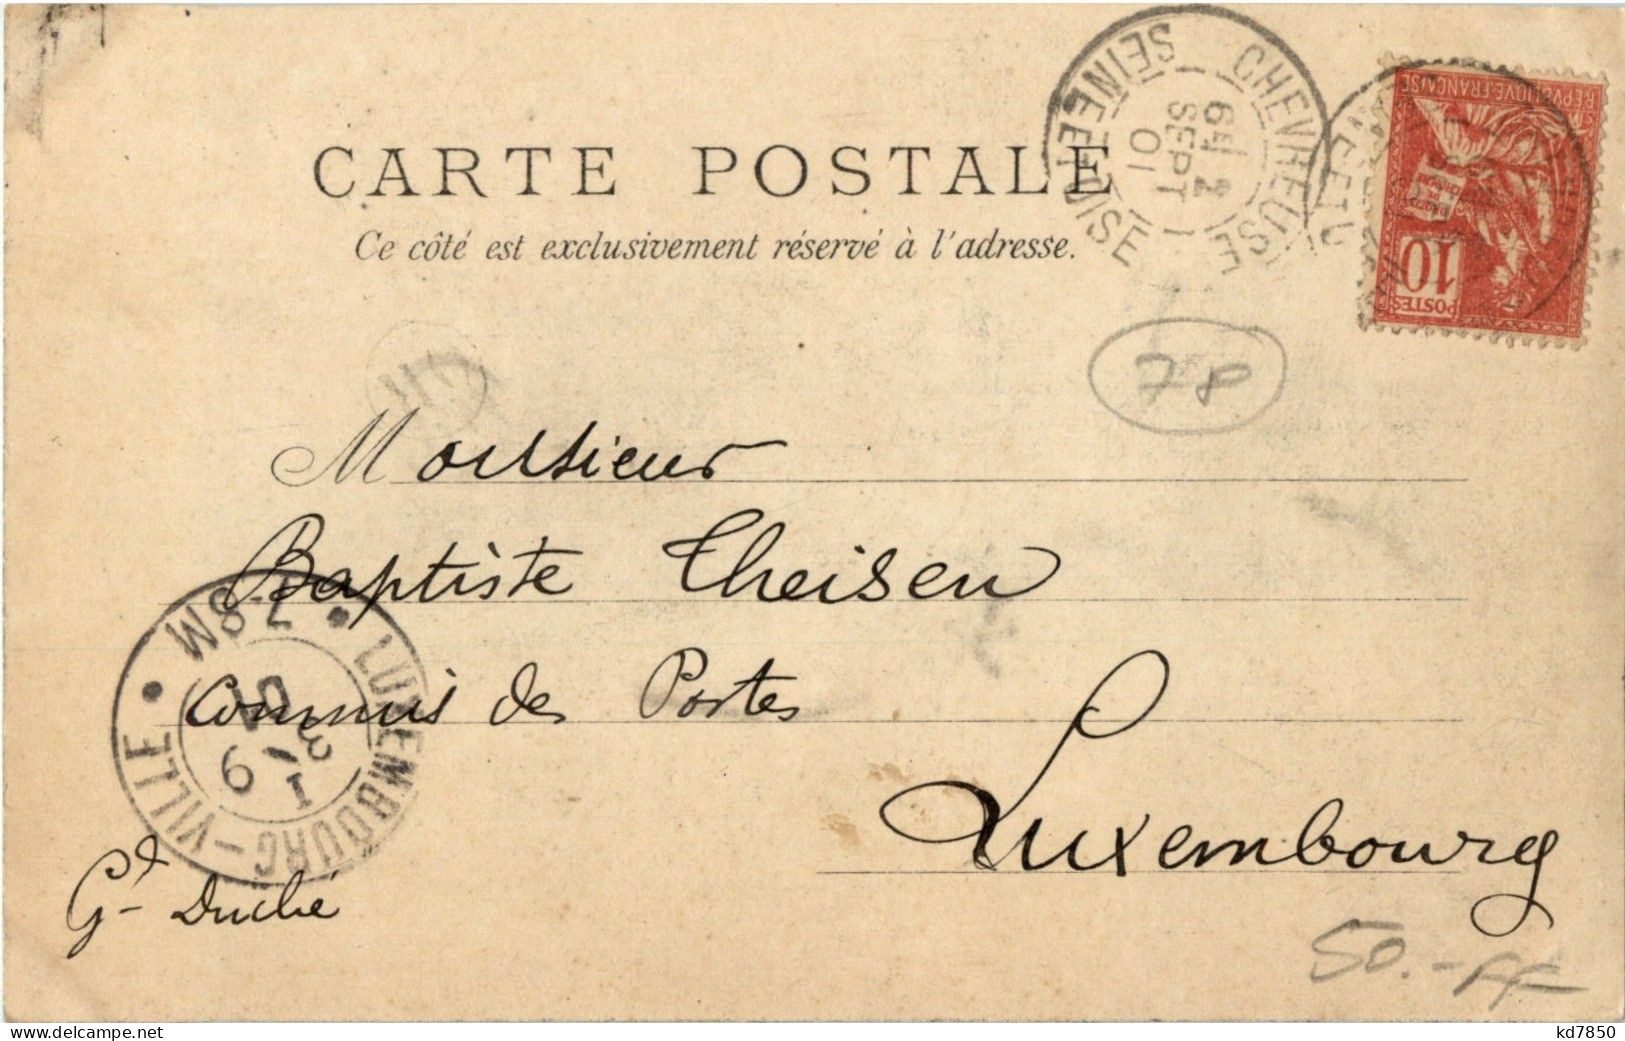 CARTE POSTALE
Ce côté est exclusivement réservé à l'adresse.
CHEVREUSE
SEINE ET OISE
2
SEPT
01
REPUBLIQUE FRANÇAISE
10
POSTES
78
Monsieur
Baptiste Theisen
Commis des Postes
Luxembourg
Gd Duché
LUXEMBOURG-VILLE
7-8M
50.-FF
kd7850